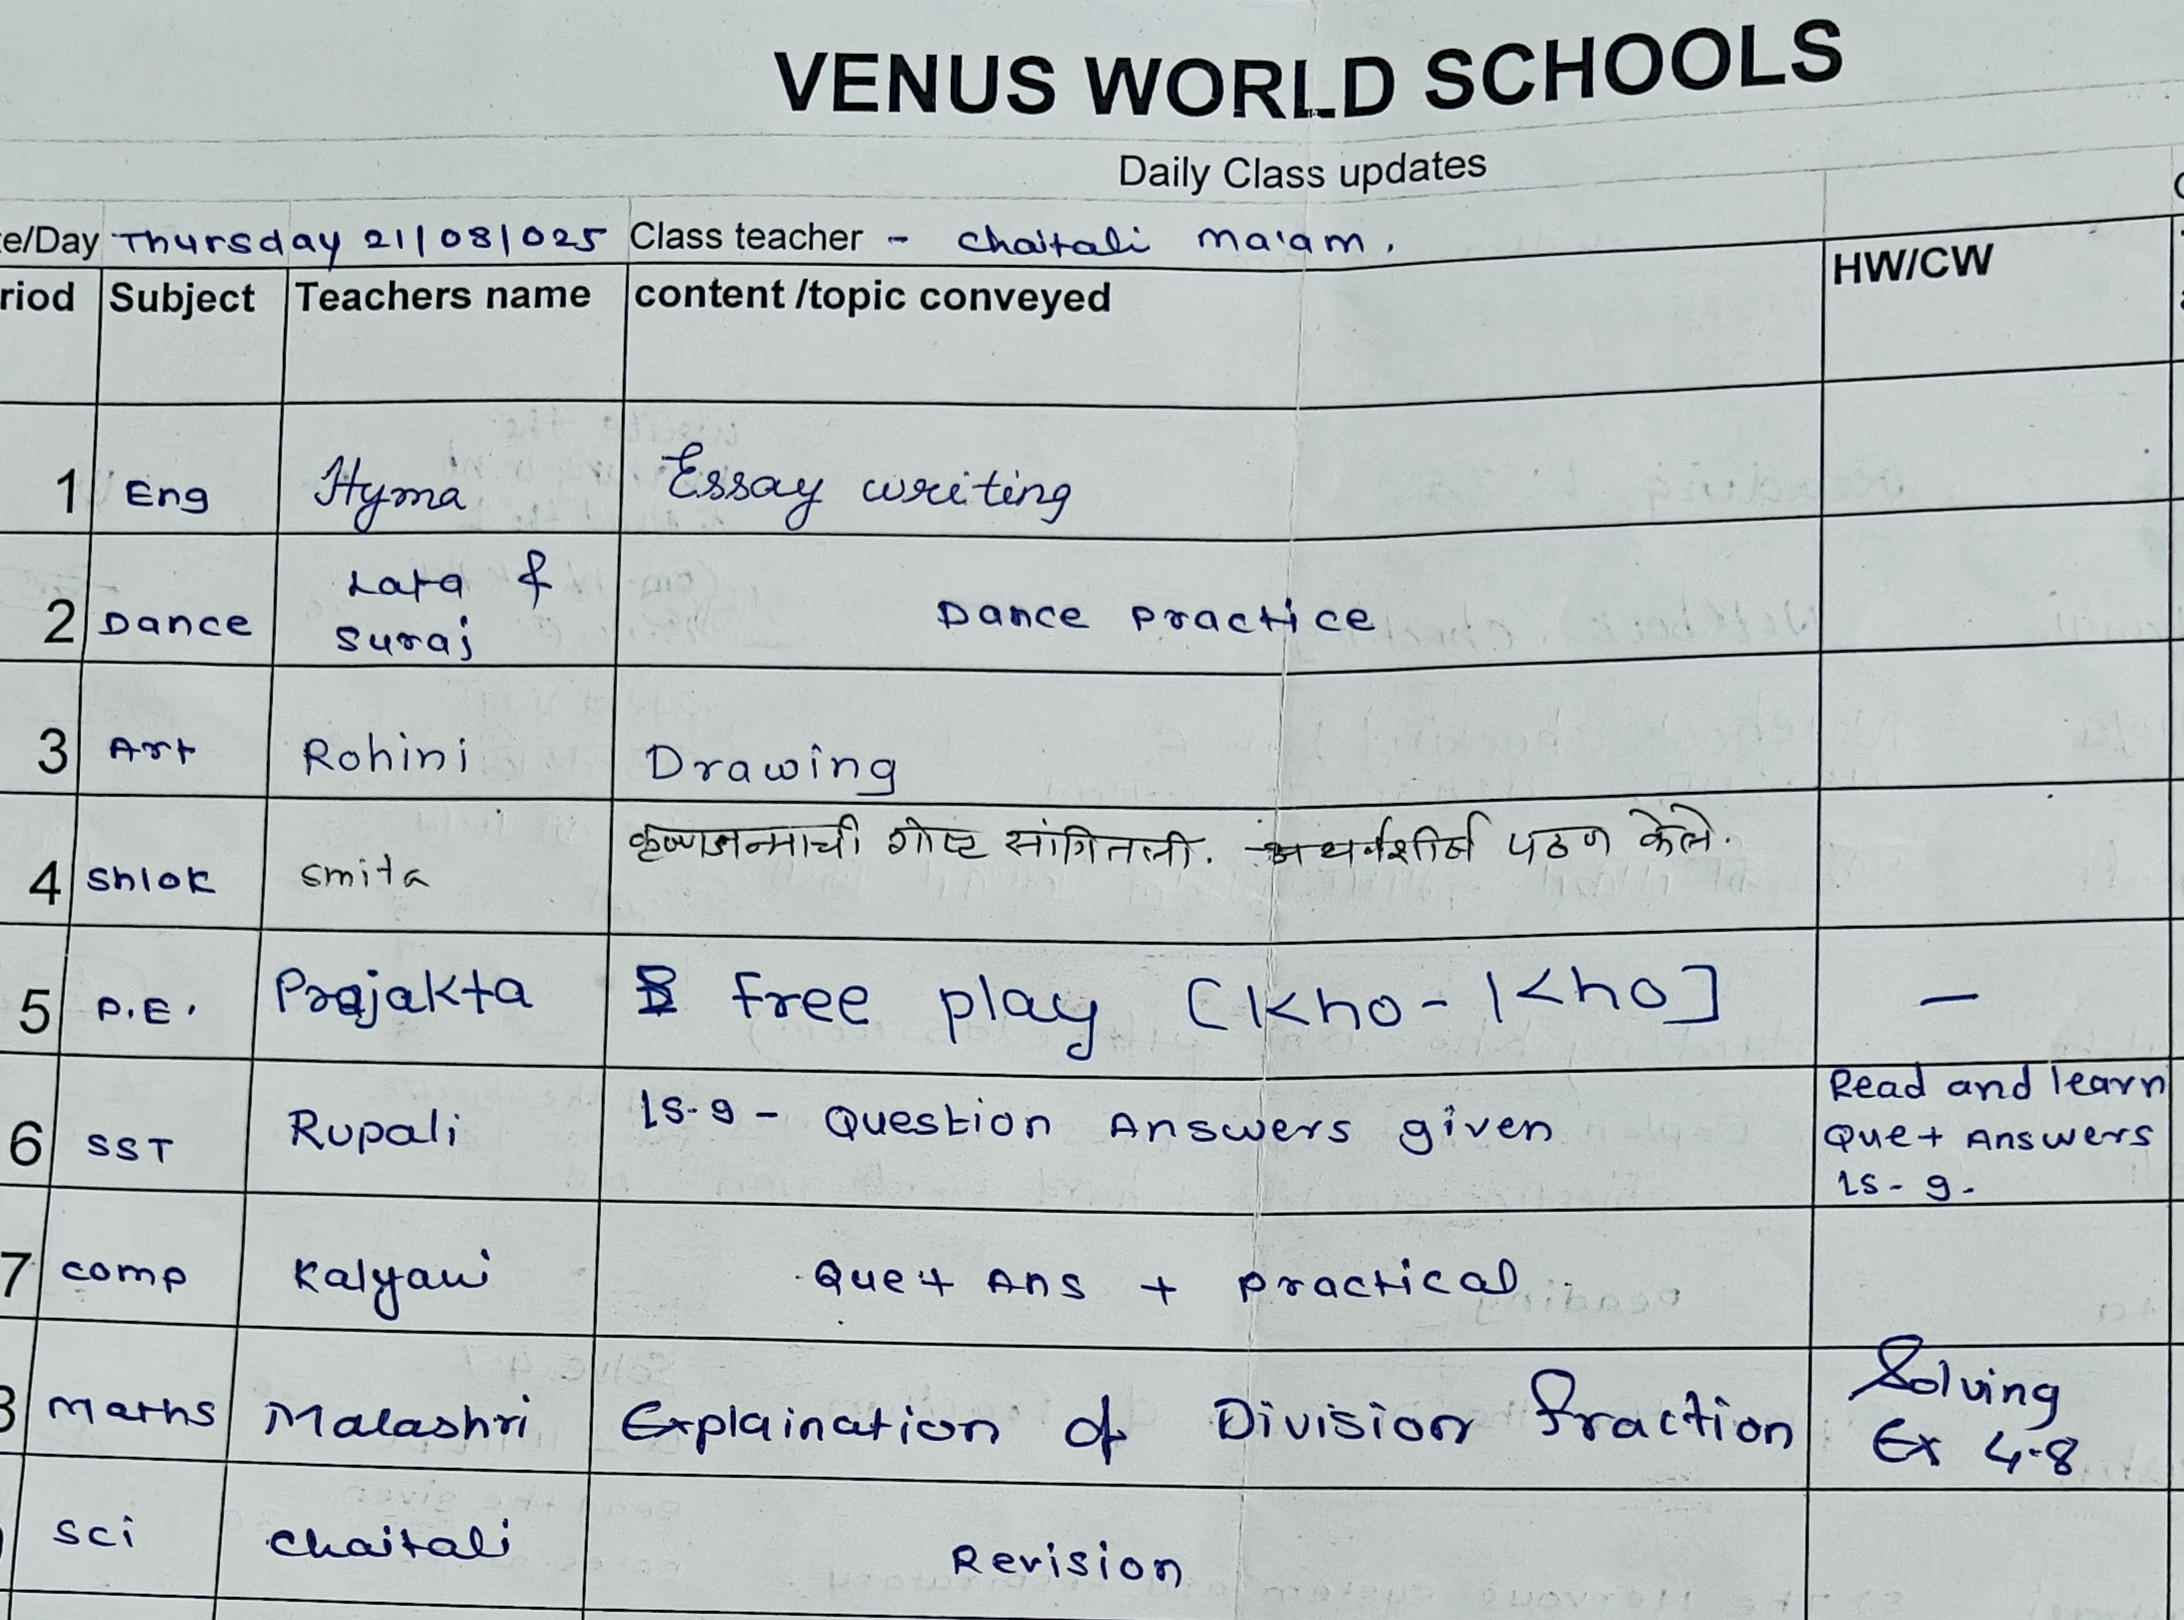 VENUS WORLD SCHOOLS
Daily Class updates
e/Day Thursday 21/08/025 Class teacher - Chaitali ma'am.
riod Subject Teachers name content /topic conveyed HW/CW
1 Eng Hyma Essay writing
2 Dance Lata & Suraj Dance Practice
3 Art Rohini Drawing
4 Shlok Smita कृष्णजन्माची गोष्ट सांगितली. अथर्वशीर्ष पठण केले.
5 P.E. Prajakta free play [Kho-Kho] —
6 SST Rupali LS-9 - Question Answers given Read and learn
Que+ Answers
LS-9.
7 Comp Kalyani Que+ Ans + Practical
8 Maths Malashri Explaination of Division fraction Solving
Ex 4.8
Sci Chaitali Revision